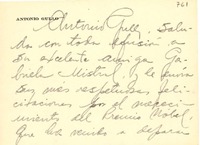 761
ANTONIO GULLO
Antonio Gull, salu-
da con toda efusión a
su excelente amiga Ga-
briela Mistral, y le envía
las más respetuosas feli-
citaciones por el
miento del Premio Nobel,
que ha venido a